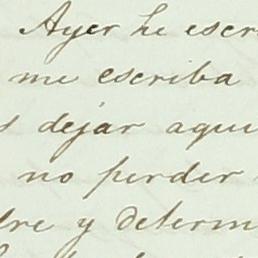 Ayer he escr
me escriba
s dejar aqui
no perder
dre y determ